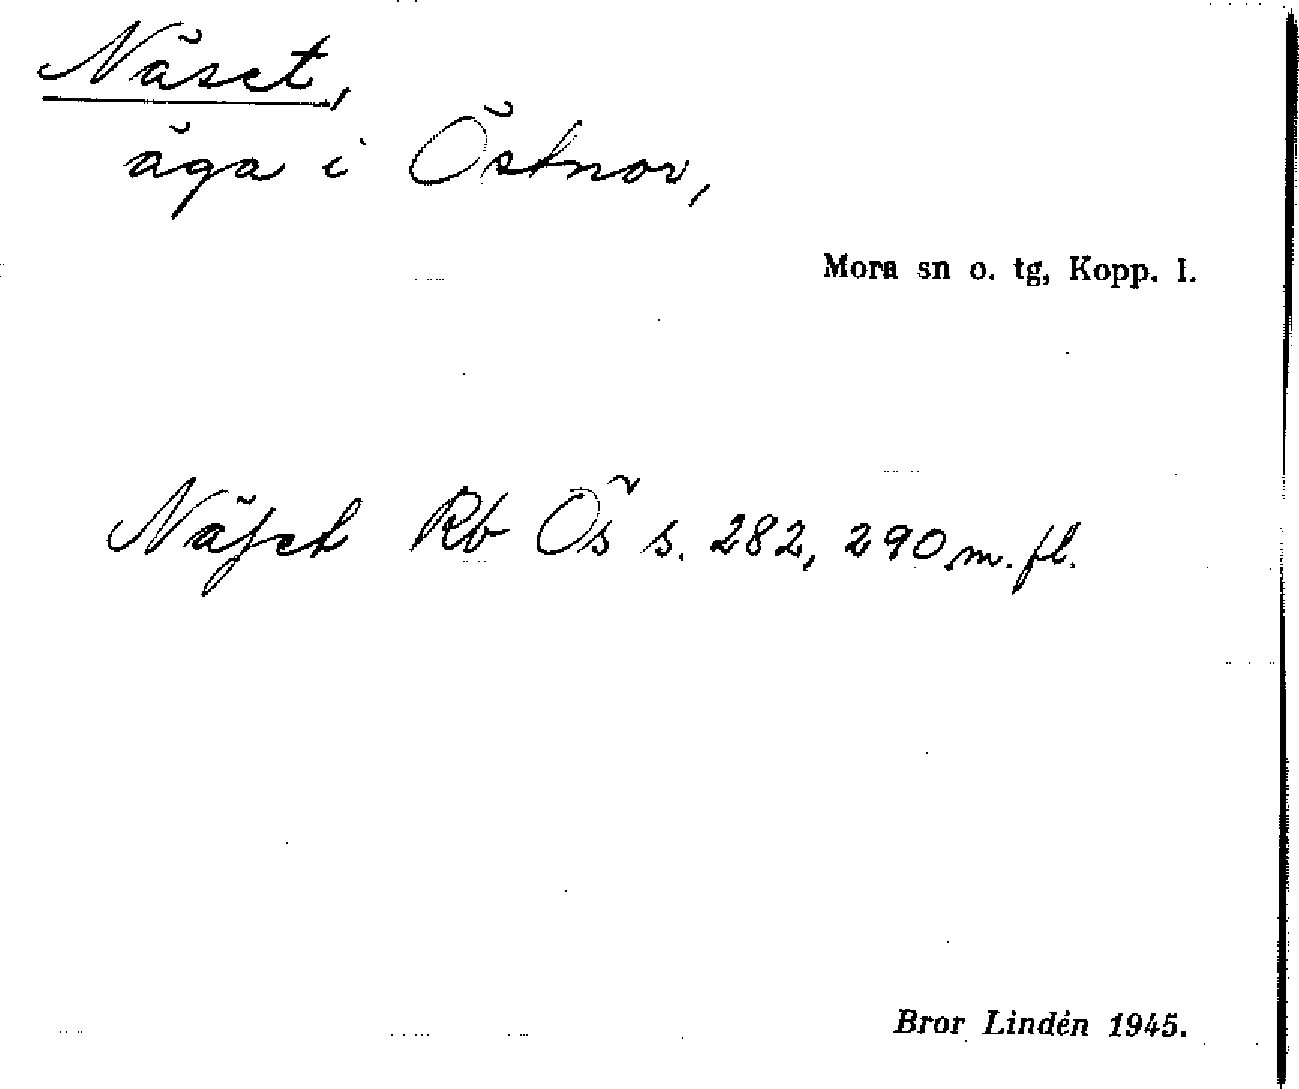 Näset,
äga i Östnor,
Mora sn o. tg, Kopp. l.
Näſet Rb Ös s. 282, 290 m. fl.
Bror Lindén 1945.